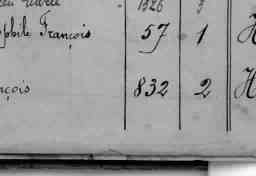 1326 3
phile François 57 1 H
nçois 832 2 H